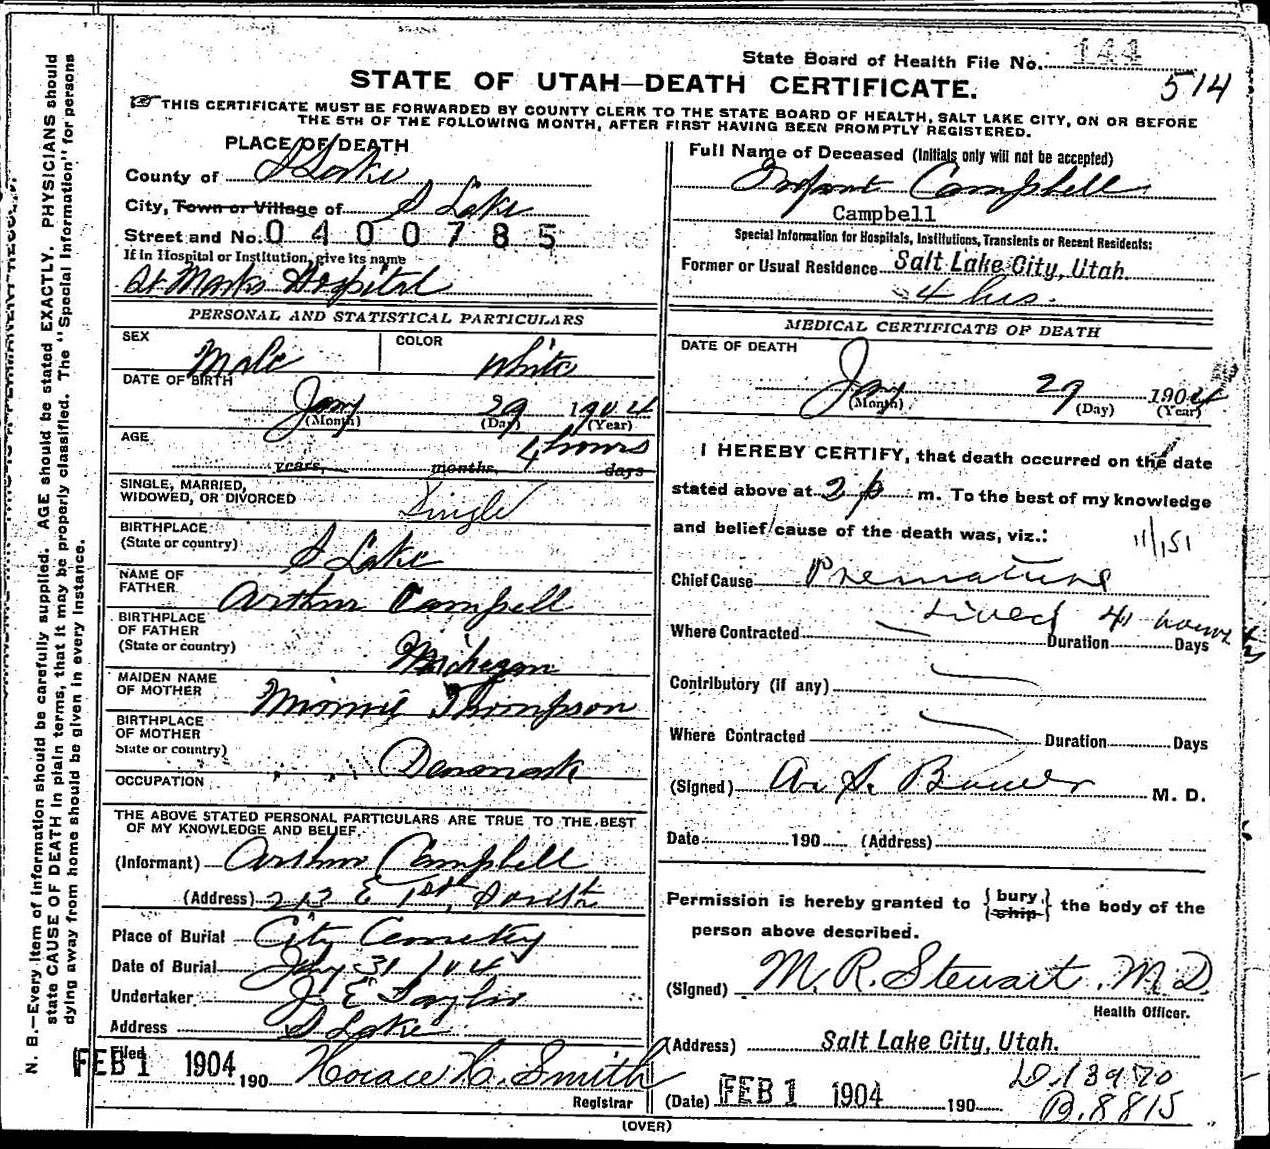 State Board of Health File No. 144
514
STATE OF UTAH—DEATH CERTIFICATE.
THIS CERTIFICATE MUST BE FORWARDED BY COUNTY CLERK TO THE STATE BOARD OF HEALTH, SALT LAKE CITY, ON OR BEFORE
THE 5TH OF THE FOLLOWING MONTH, AFTER FIRST HAVING BEEN PROMPTLY REGISTERED.
PLACE OF DEATH
County of S Lake
City, Town or Village of S Lake
Street and No. 0400785
If in Hospital or Institution, give its name
St Marks Hospital
PERSONAL AND STATISTICAL PARTICULARS
SEX Male COLOR White
DATE OF BIRTH
Jany 29 1904
(Month) (Day) (Year)
AGE 4 hours
years, months, days
SINGLE, MARRIED,
WIDOWED, OR DIVORCED Single
BIRTHPLACE
(State or country) S Lake
NAME OF
FATHER Arthur Campbell
BIRTHPLACE
OF FATHER
(State or country) Michigan
MAIDEN NAME
OF MOTHER Minnie Thompson
BIRTHPLACE
OF MOTHER
State or country) Denmark
OCCUPATION
THE ABOVE STATED PERSONAL PARTICULARS ARE TRUE TO THE BEST
OF MY KNOWLEDGE AND BELIEF
(Informant) Arthur Campbell
(Address) 213 E 1st South
Place of Burial City Cemetery
Date of Burial Jany 31 1904
Undertaker J E Taylor
Address S Lake
Filed FEB 1 1904 190 Horace H. Smith
Registrar
Full Name of Deceased (Initials only will not be accepted)
Infant Campbell
Campbell
Special Information for Hospitals, Institutions, Transients or Recent Residents:
Former or Usual Residence Salt Lake City, Utah.
4 hrs.
MEDICAL CERTIFICATE OF DEATH
DATE OF DEATH
Jany 29 1904
(Month) (Day) (Year)
I HEREBY CERTIFY, that death occurred on the date
stated above at 2 p m. To the best of my knowledge
and belief cause of the death was, viz.:
11/151
Chief Cause Premature
Lived 4 hours
Where Contracted Duration Days
Contributory (if any)
Where Contracted Duration Days
(Signed) A. S. Bower M. D.
Date 190 (Address)
Permission is hereby granted to {bury ship} the body of the
person above described.
(Signed) M. R. Stewart. M D.
Health Officer.
(Address) Salt Lake City, Utah.
D. 13970
(Date) FEB 1 1904 190
B. 8815
(OVER)
N. B.—Every item of information should be carefully supplied. AGE should be stated EXACTLY. PHYSICIANS should
state CAUSE OF DEATH in plain terms, that it may be properly classified. The "Special Information" for persons
dying away from home should be given in every instance.